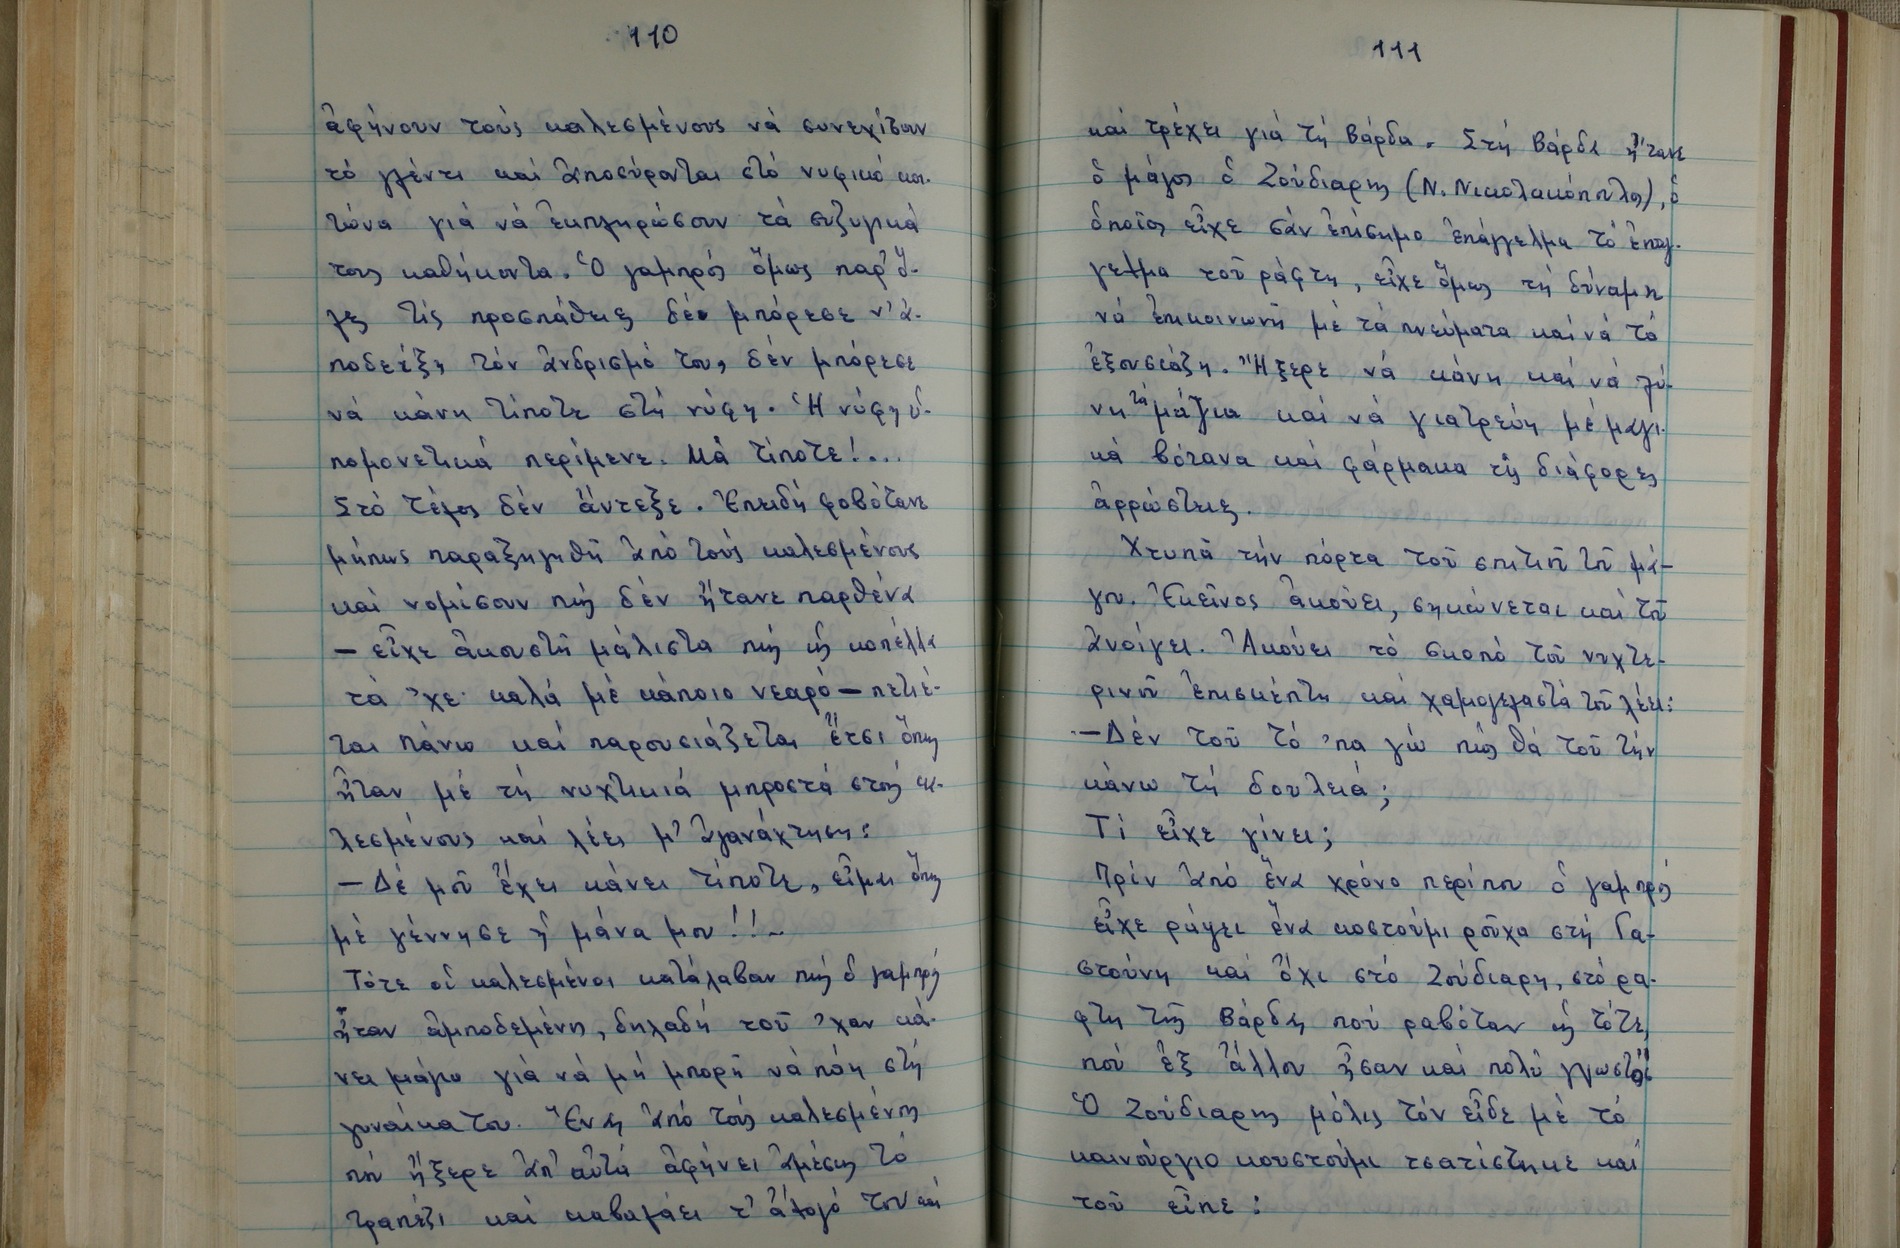 110
ἀφήνουν τούς καλεσμένους νά συνεχίσουν
τό γλέντι καί ἀποσύρονται στό νυφικό κοι-
τῶνα γιά νά ἐκπληρώσουν τά συζυγικά
τους καθήκοντα. Ὁ γαμπρός ὅμως παρ' ὅ-
λες τίς προσπάθειες δέν μπόρεσε ν' ἀ-
ποδείξη τόν ἀνδρισμό του, δέν μπόρεσε
νά κάνη τίποτε στή νύφη. Ἡ νύφη ὑ-
πομονετικά περίμενε. Μά τίποτε!...
Στό τέλος δέν ἄντεξε. Ἐπειδή φοβότανε
μήπως παραξηγηθῆ ἀπό τούς καλεσμένους
καί νομίσουν πώς δέν ἤτανε παρθένα
— εἶχε ἀκουστῆ μάλιστα πώς ἡ κοπέλλα
τά 'χε καλά μέ κάποιο νεαρό — πετιέ-
ται πάνω καί παρουσιάζεται ἔτσι ὅπως
ἦταν μέ τή νυχτικιά μπροστά στούς κα-
λεσμένους καί λέει μ' ἀγανάχτηση:
— Δέ μοῦ ἔχει κάνει τίποτε, εἶμαι ὅπως
μέ γέννησε ἡ μάνα μου!!..
Τότε οἱ καλεσμένοι κατάλαβαν πώς ὁ γαμπρός
ἦταν ἀμποδεμένος, δηλαδή τοῦ 'χαν κά-
νει μάγια γιά νά μή μπορῆ νά πάη στή
γυναίκα του. Ἕνας ἀπό τούς καλεσμένους
πού ἤξερε ἀπ' αὐτά ἀφήνει ἀμέσως τό
τραπέζι καί καβαλάει τ' ἄλογό του καί
111
καί τρέχει γιά τή Βάρδα. Στή Βάρδα ἤτανε
ὁ μάγος ὁ Ζούδιαρης (Ν. Νικολακόπουλος), ὁ
ὁποῖος εἶχε σάν ἐπίσημο ἐπάγγελμα τό ἐπαγ-
γελμα τοῦ ράφτη, εἶχε ὅμως τή δύναμη
νά ἐπικοινωνῆ μέ τά πνεύματα καί νά τά
ἐξουσιάζη. Ἤξερε νά κάνη καί νά λύ-
νη τά μάγια καί νά γιατρεύη μέ μαγι-
κά βότανα καί φάρμακα τίς διάφορες
ἀρρώστειες.
Χτυπᾶ τήν πόρτα τοῦ σπιτιοῦ τοῦ μά-
γου. Ἐκεῖνος ἀκούει, σηκώνεται καί τοῦ
ἀνοίγει. Ἀκούει τό σκοπό τοῦ νυχτε-
ρινοῦ ἐπισκέπτη καί χαμογελαστά τοῦ λέει:
— Δέν τοῦ τό 'πα γώ πώς θά τοῦ τήν
κάνω τή δουλειά;
Τί εἶχε γίνει;
Πρίν ἀπό ἕνα χρόνο περίπου ὁ γαμπρός
εἶχε ράψει ἕνα κοστούμι ροῦχα στή Γα-
στούνη καί ὄχι στό Ζούδιαρη, στό ρα-
φτη τῆς Βάρδας πού ραβόταν ὡς τότε,
πού ἐξ ἄλλου ἦσαν καί πολύ γνωστοί
Ὁ Ζούδιαρης μόλις τόν εἶδε μέ τό
καινούργιο κουστούμι τσατίστηκε καί
τοῦ εἶπε: